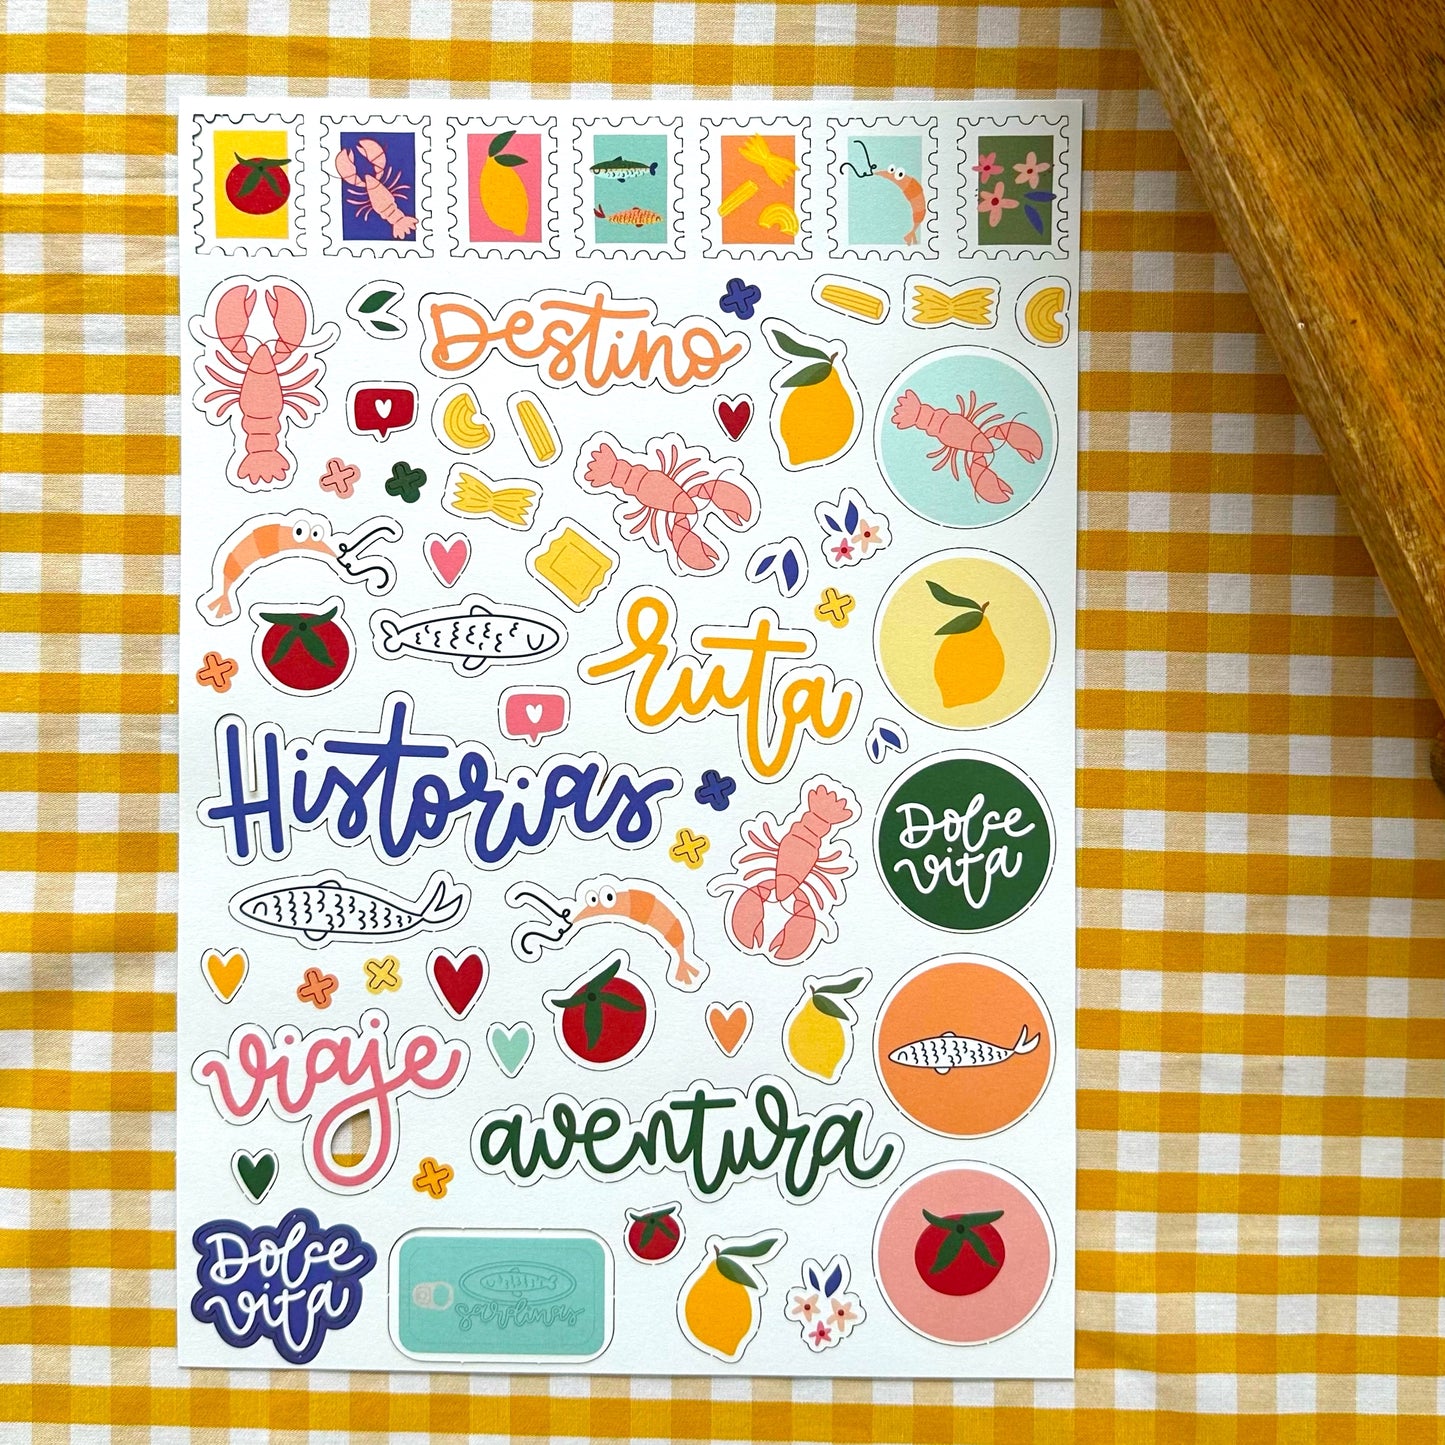 Destino
ruta
Historias
Dolce
vita
viaje
aventura
Dolce
vita
sardinas